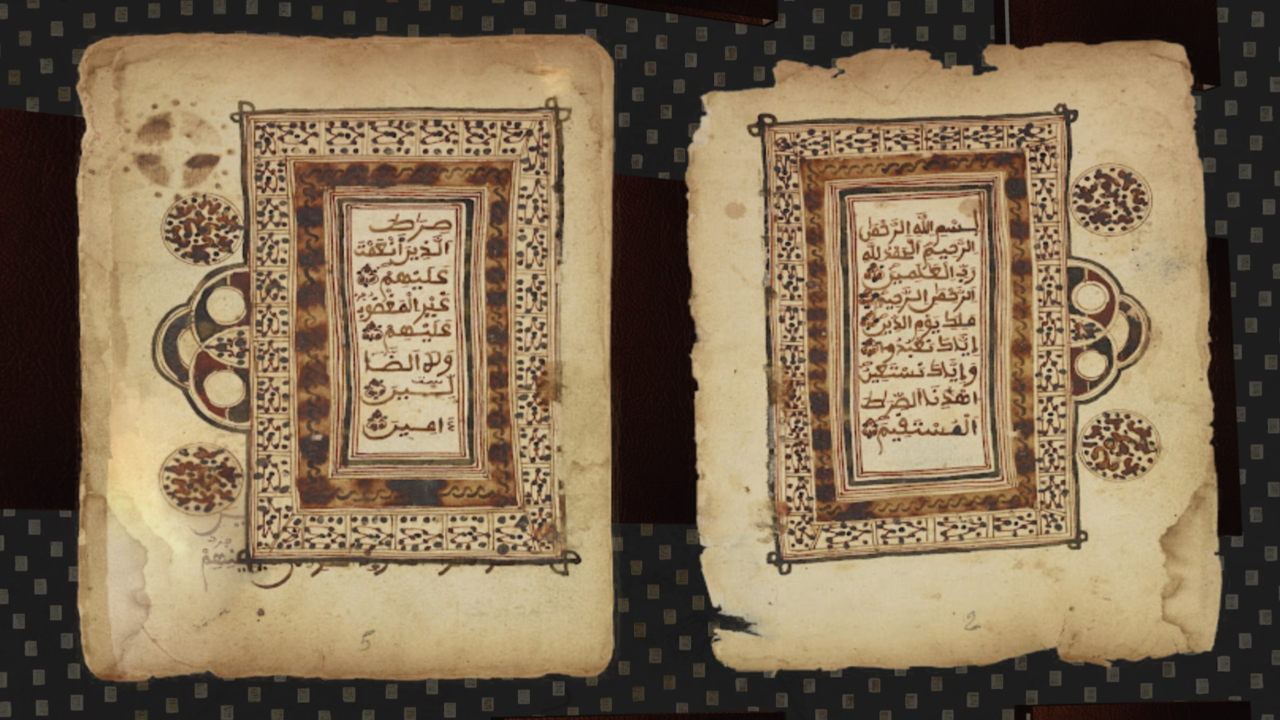 بسم الله الرحمن
الرحيم الحمد لله
رب العلمين
الرحمن الرحيم
ملك يوم الدين
إياك نعبد و
وإياك نستعين
اهدنا الصرط
المستقيم
2
صرط
الذين أنعمت
عليهم
غير المغضوب
عليهم
ولا الضا
لين
ءامين
5